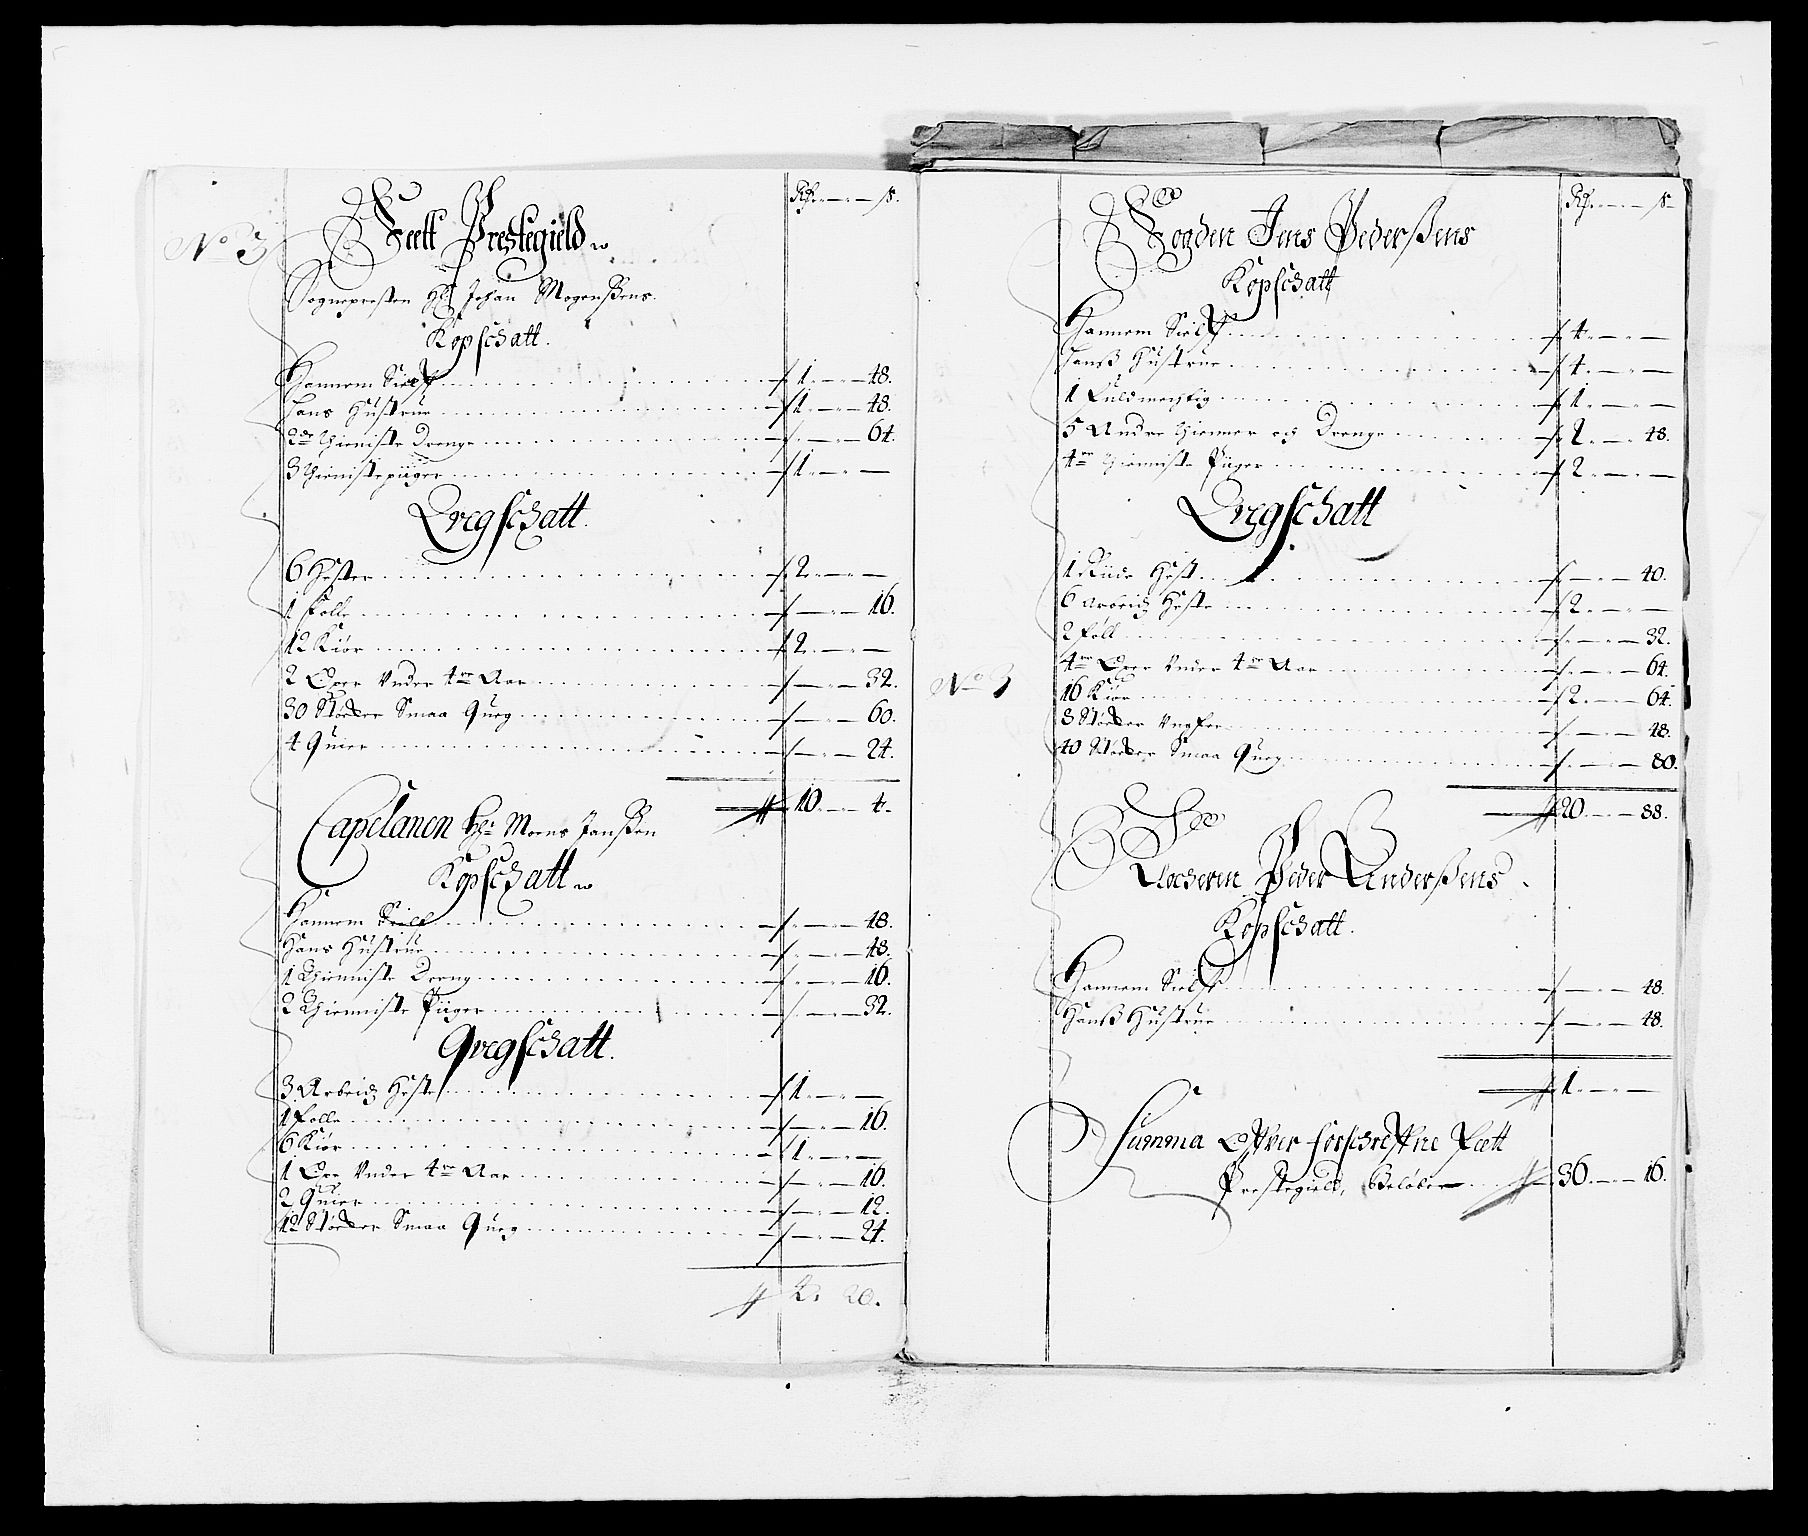 No 3
Rd. s.
Feett Prestegield
Sognepresten Hr Johan Mogenßens
Kopschatt.
Hannem Sielf 1 48.
Hans Hustrue 1 48.
2de Thieniste Drenge 64.
3 Thienistepiiger 1
Qvegschatt.
6 Hester 2
1 Folle 16.
12 Kiør 2
2 Øxen Under 4re Aar 32.
30 Støcker Smaa Queg 60.
4 Quier 24.
10 4.
Capelanen Hr Moens Janßen
Kopschatt
Hannem Sielf 48.
Hans Hustrue 48.
1 Thienniste Dreng 16.
2 Thienniste Piiger 32.
Qvegschatt.
3 Arbeids Heste 1
1 Folle 16.
6 Kiør 1
1 Oxe Under 4re Aar 16.
2 Quier 12.
12 Støcker Smaa Queg 24.
20.
Rd. s
Fogden Jens Pederßens
Kopschatt
Hannem Sielf 4
Hanß Hustrue 4
1 Fuldmechtig 1
5 Andre Thienner og Drenge 2 48.
4re Thienniste Piiger 2
Qvegschatt
1 Riide Hest 40.
6 Arbeids Heste 2
2 Føll 32.
4re Oxer Under 4re Aar 64.
No 3
16 Kiør 2 64.
8 Støcker Ungfee 48.
40 Støcker Smaa Queg 80.
20 88.
Klockeren Peder Anderßens
Kopschatt.
Hannem Sielf 48.
Hanß Hustrue 48.
1
Summa Offver forschreffne Feett
Prestegield, Beløber 36 16.